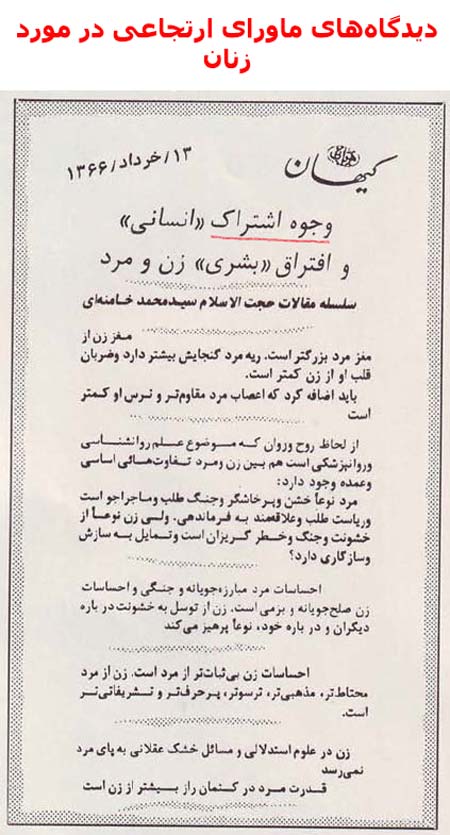 دیدگاه‌های ماورای ارتجاعی در مورد
زنان
کیهان
۱۳/خرداد/۱۳۶۶
وجوه اشتراک «انسانی»
و افتراق «بشری» زن و مرد
سلسله مقالات حجت الاسلام سیدمحمد خامنه‌ای
مغز زن از
مغز مرد بزرگتر است. ریه مرد گنجایش بیشتر دارد وضربان
قلب او از زن کمتر است.
باید اضافه کرد که اعصاب مرد مقاوم‌تر و ترس او کمتر
است
از لحاظ روح وروان که موضوع علم روانشناسی
وروانپزشکی است هم بین زن ومرد تفاوت‌هائی اساسی
وعمده وجود دارد:
مرد نوعاً خشن وپرخاشگر وجنگ طلب وماجراجو است
وریاست طلب وعلاقه‌مند به فرماندهی. ولی زن نوعاً از
خشونت وجنگ وخطر گریزان است وتمایل به سازش
وسازگاری دارد؟
احساسات مرد مبارزه‌جویانه و جنگی و احساسات
زن صلح‌جویانه و بزمی است. زن از توسل به خشونت در باره
دیگران و در باره خود، نوعاً پرهیز می‌کند
احساسات زن بی‌ثبات‌تر از مرد است. زن از مرد
محتاط‌تر، مذهبی‌تر، ترسوتر، پرحرف‌تر و تشریفاتی‌تر
است.
زن در علوم استدلالی و مسائل خشک عقلانی به پای مرد
نمی‌رسد
قدرت مرد در کتمان راز بیشتر از زن است